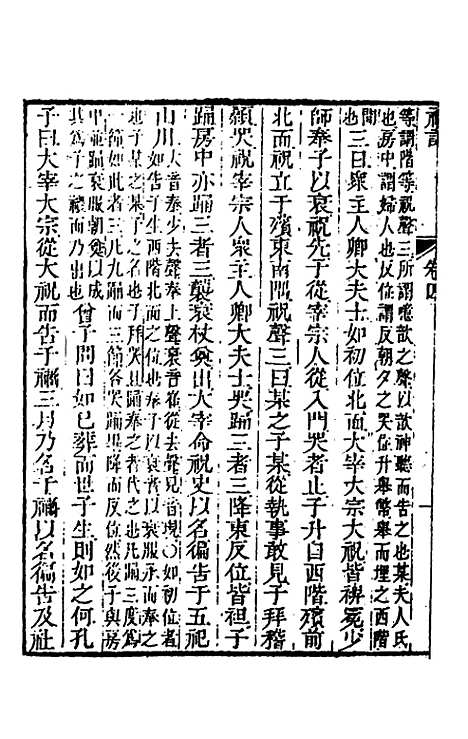 禮記 卷四
等謂階等祝聲三所謂噫歆之聲以歆神聽而告之也某夫人氏
也房中謂婦人也反位謂反朝夕之哭位升舉幣舉而埋之西階
閒
也三日衆主人卿大夫士如初位北面大宰大宗大祝皆裨冕少
師奉子以衰祝先子從宰宗人從入門哭者止子升自西階殯前
北面祝立于殯東南隅祝聲三曰某之子某從執事敢見子拜稽
顙哭祝宰宗人衆主人卿大夫士哭踊三者三降東反位皆袒子
踊房中亦踊三者三襲衰杖奠出大宰命祝史以名徧告于五祀
山川大音泰少去聲奉上聲衰音催從去聲見音現〇如初位者
如告子生西階北面之位也奉子以衰者以衰服承而奉之
也子某之某子之名也子拜哭且踊奉之者代之也凡踊三度爲
一節如此者三凡九踊而三節各哭踊畢降而反位然後子與房
中並踊衰服朝奠以成
其爲子之禮而乃出也曾子問曰如已葬而世子生則如之何孔
子曰大宰大宗從大祝而告于禰三月乃名于禰以名徧告及社